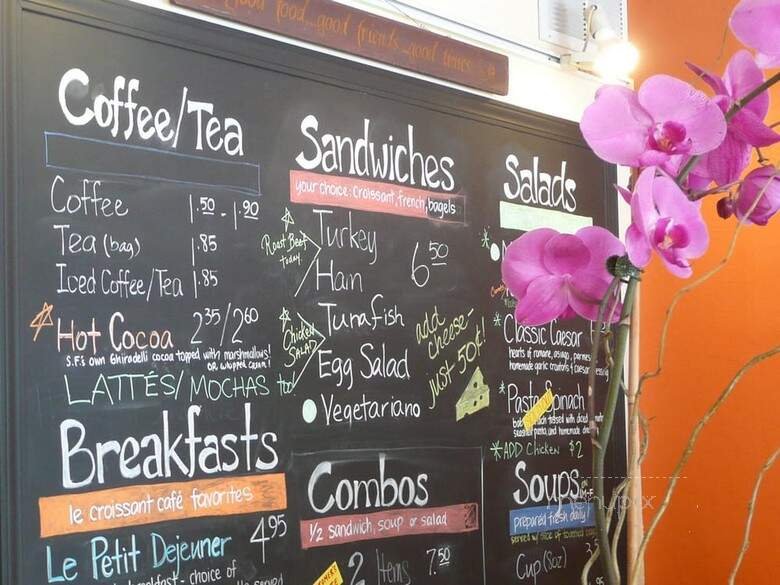 good food...good friends...good times
Coffee/Tea
Coffee 1.50 - 1.90
Tea (bag) 1.85
Iced Coffee/Tea 1.85
Hot Cocoa 2.35/2.60
S.F.'s own Ghiradelli cocoa topped with marshmallows!
OR whipped cream!
LATTÉS/MOCHAS too!
Breakfasts
le croissant café favorites
Le Petit Dejeuner 4.95
breakfast - choice of
Sandwiches
your choice: croissant, french, bagels
Roast Beef
today
Turkey
Ham
6.50
Chicken
SALAD
Tunafish
Egg Salad
Vegetariano
add
cheese-
just 50¢!
Combos
1/2 sandwich, soup or salad
2 Items 7.50
Salads
Classic Caesar
hearts of romaine, asiago, parmes
homemade garlic croutons & caesar
Pasta Spinach
ADD Chicken $2
Soups
prepared fresh daily
served w/ slice of
Cup (8oz)